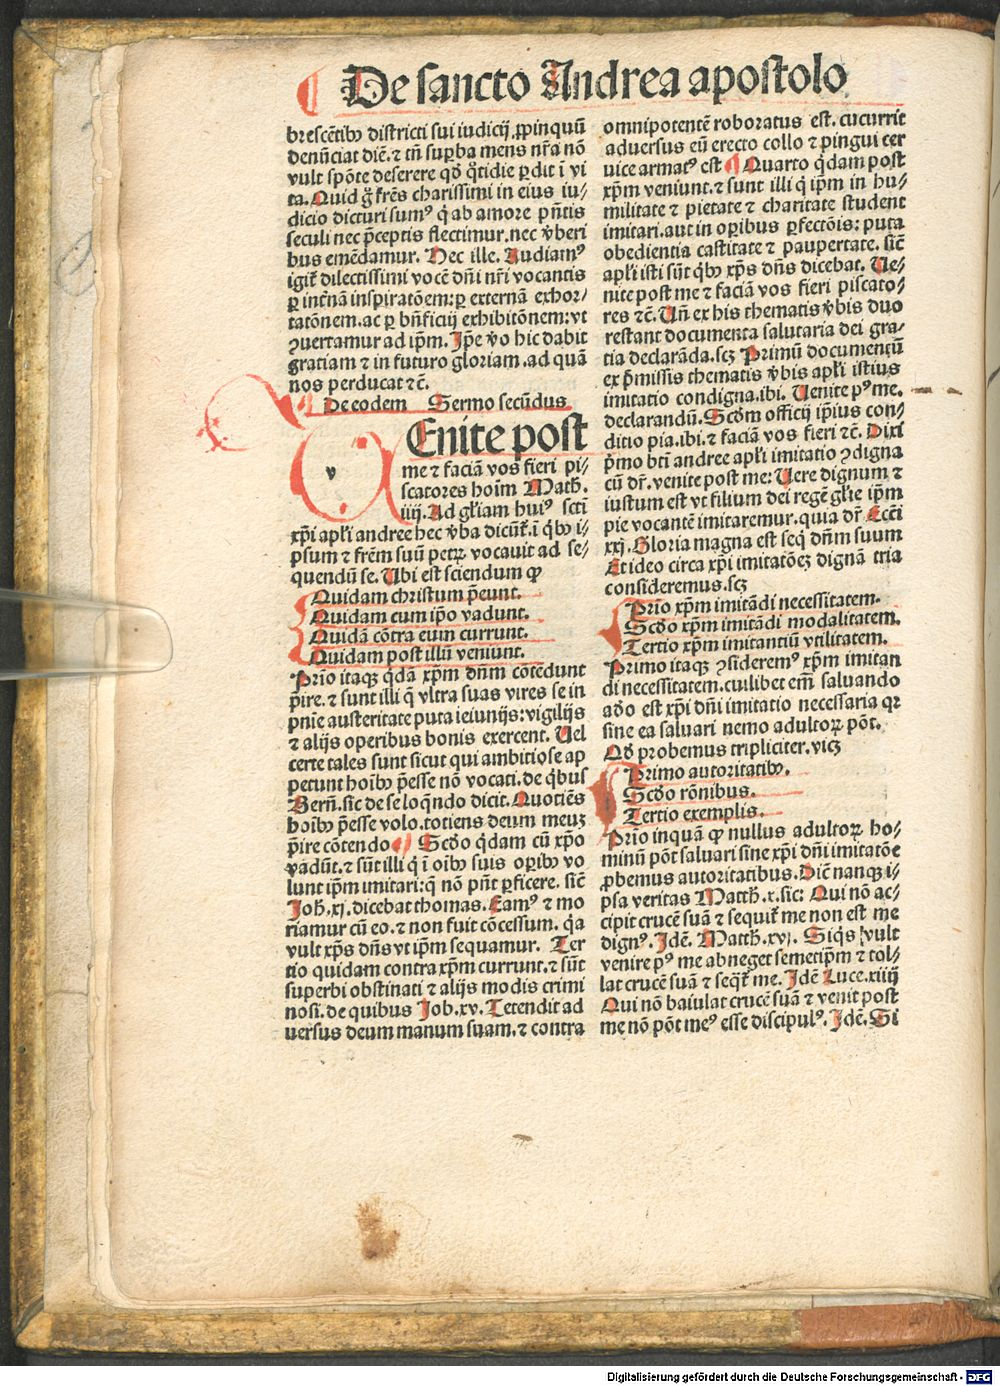 De sancto Andrea apostolo
brescẽtibꝰ districti sui iudicij ꝓpinquũ
denũciat diẽ. ⁊ tñ suꝑba mens nr̃a nõ
vult spõte deserere qđ q̃tidie ꝑdit ĩ vi
ta. Quid g̃ fr̃es charissimi in eius iu⸗
dicio dicturi sumꝰ q̃ ab amore pñtis
seculi nec p̃ceptis flectimur. nec v̾beri
bus emẽdamur. Hec ille. Audiamꝰ
igit᷑ dilectissimi vocẽ dñi nr̃i vocantis
ꝑ int̾nã inspiratõem: ꝑ externã exhor⸗
tatõnem. ac ꝑ bñficij exhibitõnem: vt
ꝯuertamur ad ip̃m. Ip̃e v̾o hic dabit
gratiam ⁊ in futuro gloriam. ad quã
nos perducat ⁊c̃.
De eodem Sermo secũdus
VEnite post
me ⁊ faciã vos fieri pi⸗
scatores hoĩm Math̃.
iiij. Ad gl̃iam huiꝰ sctĩ
xp̃i apl̃i andree hec v̾ba dicũt᷑. ĩ qᷤbꝰ i⸗
psum ⁊ fr̃em suũ petrꝝ vocauit ad se⸗
quendũ se. Ubi est sciendum ꝙ
Quidam christum p̃eunt.
Quidam cum ip̃o vadunt.
Quidã cõtra eum currunt.
Quidam post illũ veniunt.
Prĩo itaqꝫ q̃dã xp̃m dñm cõtedunt
p̃ire. ⁊ sunt illi q̃ vltra suas vires se in
pñie austeritate puta ieiunijs: vigilijs
⁊ alijs operibus bonis exercent. Uel
certe tales sunt sicut qui ambitiose ap
petunt hoĩbꝰ p̃esse nõ vocati. de q̃bus
Berñ. sic de se loq̃ndo dicit. Quotiẽs
hoĩbꝰ p̃esse volo. totiens deum meuꝫ
p̃ire cõtendo Scđo q̃dam cũ xp̃o
vadũt. ⁊ sũt illi q̃ ĩ oĩbꝰ suis oꝑibꝰ vo
lunt ip̃m imitari: q̃ nõ pñt ꝑficere. sic̃
Joh̃. xj. dicebat thomas. Eamꝰ ⁊ mo
riamur cũ eo. ⁊ non fuit cõcessum. q̃a
vult xp̃s dñs vt ip̃m sequamur. Ter
tio quidam contra xp̃m currunt. ⁊ sũt
superbi obstinati ⁊ alijs modis crimi
nosi. de quibus Job. xv. Tetendit ad
versus deum manum suam. ⁊ contra
omnipotentẽ roboratus est. cucurrit
adversus eũ erecto collo ⁊ pingui cer
uice armatꝰ est Quarto q̃dam post
xp̃m veniunt. ⁊ sunt illi q̃ ip̃m in hu⸗
militate ⁊ pietate ⁊ charitate student
imitari. aut in oꝑibus ꝑfectõis: puta
obedientia castitate ⁊ paupertate. sic̃
apl̃i isti sũt q̃bꝰ xp̃s dñs dicebat. Ue⸗
nite post me ⁊ faciã vos fieri piscato⸗
res ⁊c̃. Uñ ex his thematis v̾bis duo
restant documenta salutaria dei gra⸗
tia declarãda. scꝫ Primũ documentũ
ex p̃missis thematis v̾bis apl̃i istius
imitatio condigna. ibi. Uenite pꝰ me.
declarandũ. Scđm officij ip̃ius con⸗
ditio pia. ibi. ⁊ faciã vos fieri ⁊c̃. Dixi
p̃mo bt̃i andree apl̃i imitatio ꝯdigna
cũ dr̃. venite post me: Uere dignum ⁊
iustum est vt filium dei regẽ gl̃ie ip̃m
pie vocantẽ imitaremur. quia dr̃ Ecc̃i
xxj. Gloria magna est seq̃ dñm suum
Et ideo circa xp̃i imitatõeꝫ dignã tria
consideremus. scꝫ
Prĩo xp̃m imitãdi necessitatem.
Scđo xp̃m imitãdi modalitatem.
Tertio xp̃m imitantiũ vtilitatem.
Primo itaqꝫ ꝯsideremꝰ xp̃m imitan
di necessitatem. cuilibet em̃ saluando
adeo est xp̃i dñi imitatio necessaria qꝛ
sine ea saluari nemo adultoꝝ põt.
Qđ probemus tripliciter. vicꝫ
Primo autoritatibꝰ.
Scđo rõnibus.
Tertio exemplis.
Prĩo inquã ꝙ nullus adultoꝝ ho⸗
minũ põt saluari sine xp̃i dñi imitatõe
ꝓbemus autoritatibus. Dic̃ nanqꝫ i⸗
psa veritas Matth̃. x. sic: Qui nõ ac⸗
cipit crucẽ suã ⁊ sequit᷑ me non est me
dignꝰ. Idẽ. Matth̃. xvj. Siq̃s vult
venire pꝰ me abneget semetip̃m ⁊ tol⸗
lat crucẽ suã ⁊ seq̃t᷑ me. Idẽ Luce. xiiij
Qui nõ baiulat crucẽ suã ⁊ venit post
me nõ põt meꝰ esse discipulꝰ. Idẽ. Si
Digitalisierung gefördert durch die Deutsche Forschungsgemeinschaft - DFG